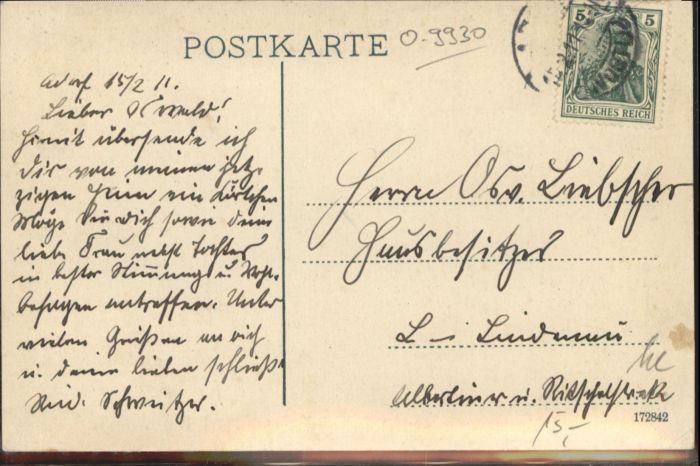 POSTKARTE
O-9930
5 5
DEUTSCHES REICH
Adorf 15/2 11.
Lieber Oswald!
Hiermit übersende ich
Dir von meinem jet-
zigen Heim ein Kärtchen
Möge Sie Dich sowie deine
liebe Frau nebst Tochter
in bester Stimmung u. Wohl-
behagen antreffen. Unter
vielen Grüßen an dich
u. deine lieben schließt
Rud. Schweitzer.
Herrn Osv. Liebscher
Hausbesitzer
L - Lindenau
Albertiner u. Ritschelstraße
172842
15,-